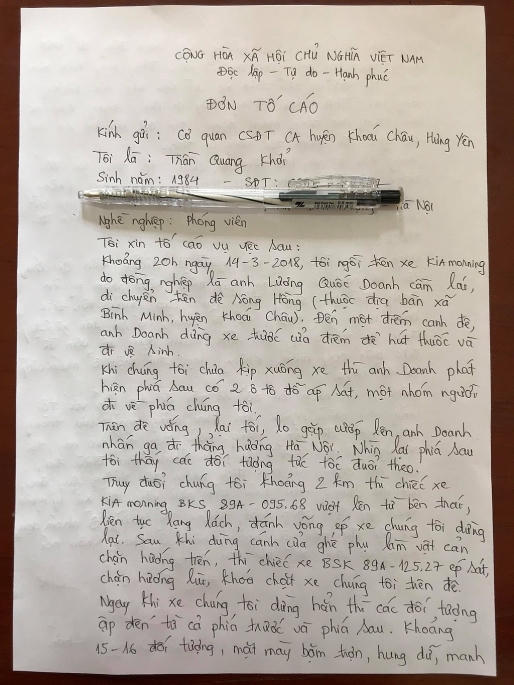 CỘNG HÒA XÃ HỘI CHỦ NGHĨA VIỆT NAM
Độc lập - Tự do - Hạnh phúc
ĐƠN TỐ CÁO
Kính gửi : Cơ quan CSĐT CA huyện Khoái Châu, Hưng Yên
Tôi là : Trần Quang Khởi
Sinh năm : 1984 - SĐT :
Hà Nội
Nghề nghiệp : Phóng viên
Tôi xin tố cáo vụ việc sau :
Khoảng 20h ngày 14-3-2018, tôi ngồi trên xe KIA morning
do đồng nghiệp là anh Lương Quốc Doanh cầm lái,
di chuyển trên đê Sông Hồng (thuộc địa bàn xã
Bình Minh, huyện Khoái Châu). Đến một điếm canh đê,
anh Doanh dừng xe trước cửa điếm để hút thuốc và
đi vệ sinh.
Khi chúng tôi chưa kịp xuống xe thì anh Doanh phát
hiện phía sau có 2 ô tô đỗ áp sát, một nhóm người
đi về phía chúng tôi.
Trên đê vắng, lại tối, lo gặp cướp lên anh Doanh
nhấn ga đi thẳng hướng Hà Nội. Nhìn lại phía sau
tôi thấy các đối tượng tức tốc đuổi theo.
Truy đuổi chúng tôi khoảng 2 km thì chiếc xe
KIA morning BKS 89A - 095.68 vượt lên từ bên trái,
liên tục lạng lách, đánh võng ép xe chúng tôi dừng
lại. Sau khi dùng cánh cửa ghế phụ làm vật cản
chặn hướng trên, thì chiếc xe BSK 89A - 125.27 ép sát,
chặn hướng lùi, khoá chặt xe chúng tôi trên đê.
Ngay khi xe chúng tôi dừng hẳn thì các đối tượng
ập đến từ cả phía trước và phía sau. Khoảng
15-16 đối tượng, mặt mày bặm trợn, hung dữ, manh